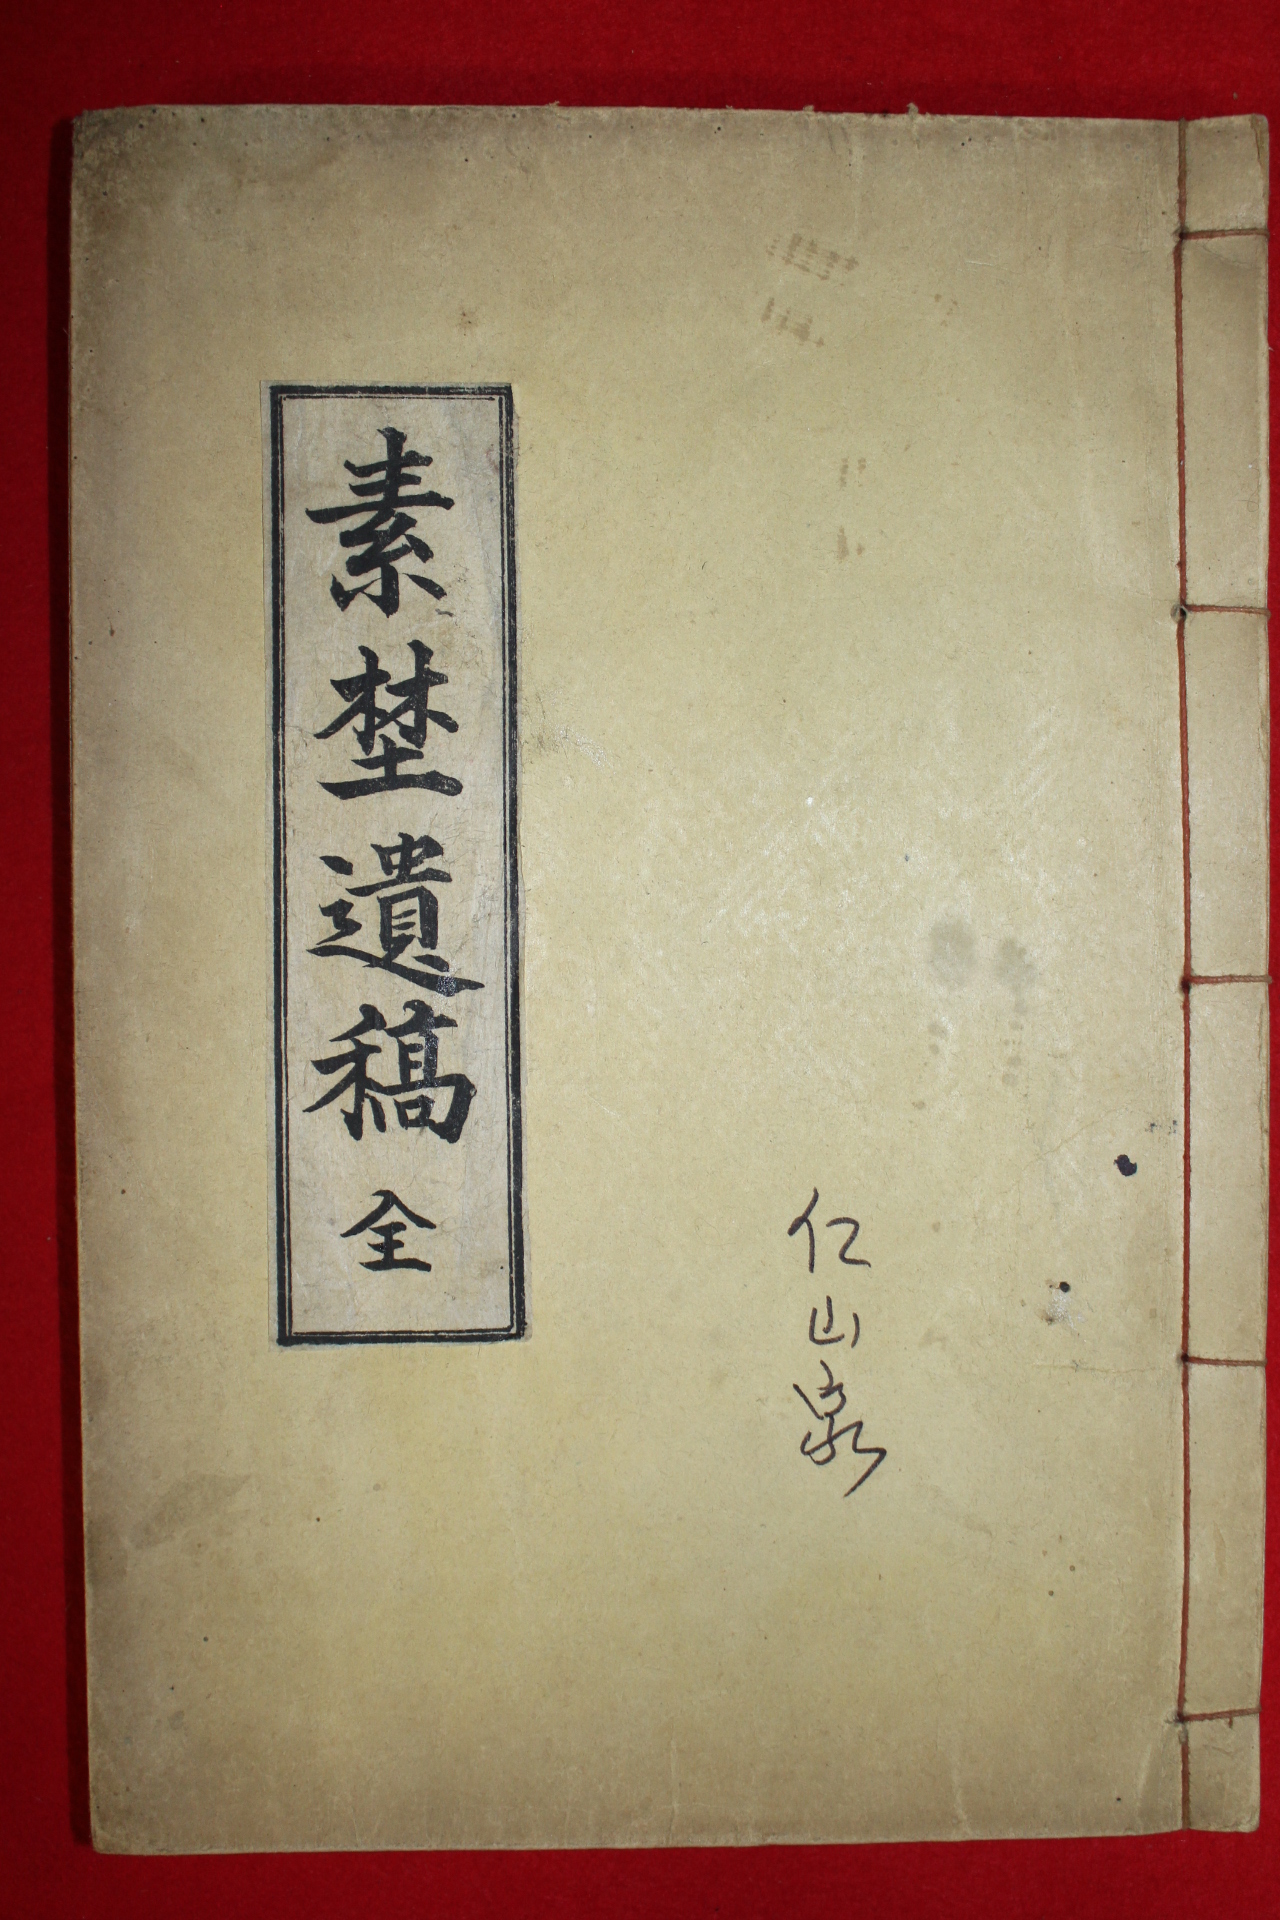 仁山泉
素埜遺稿 全